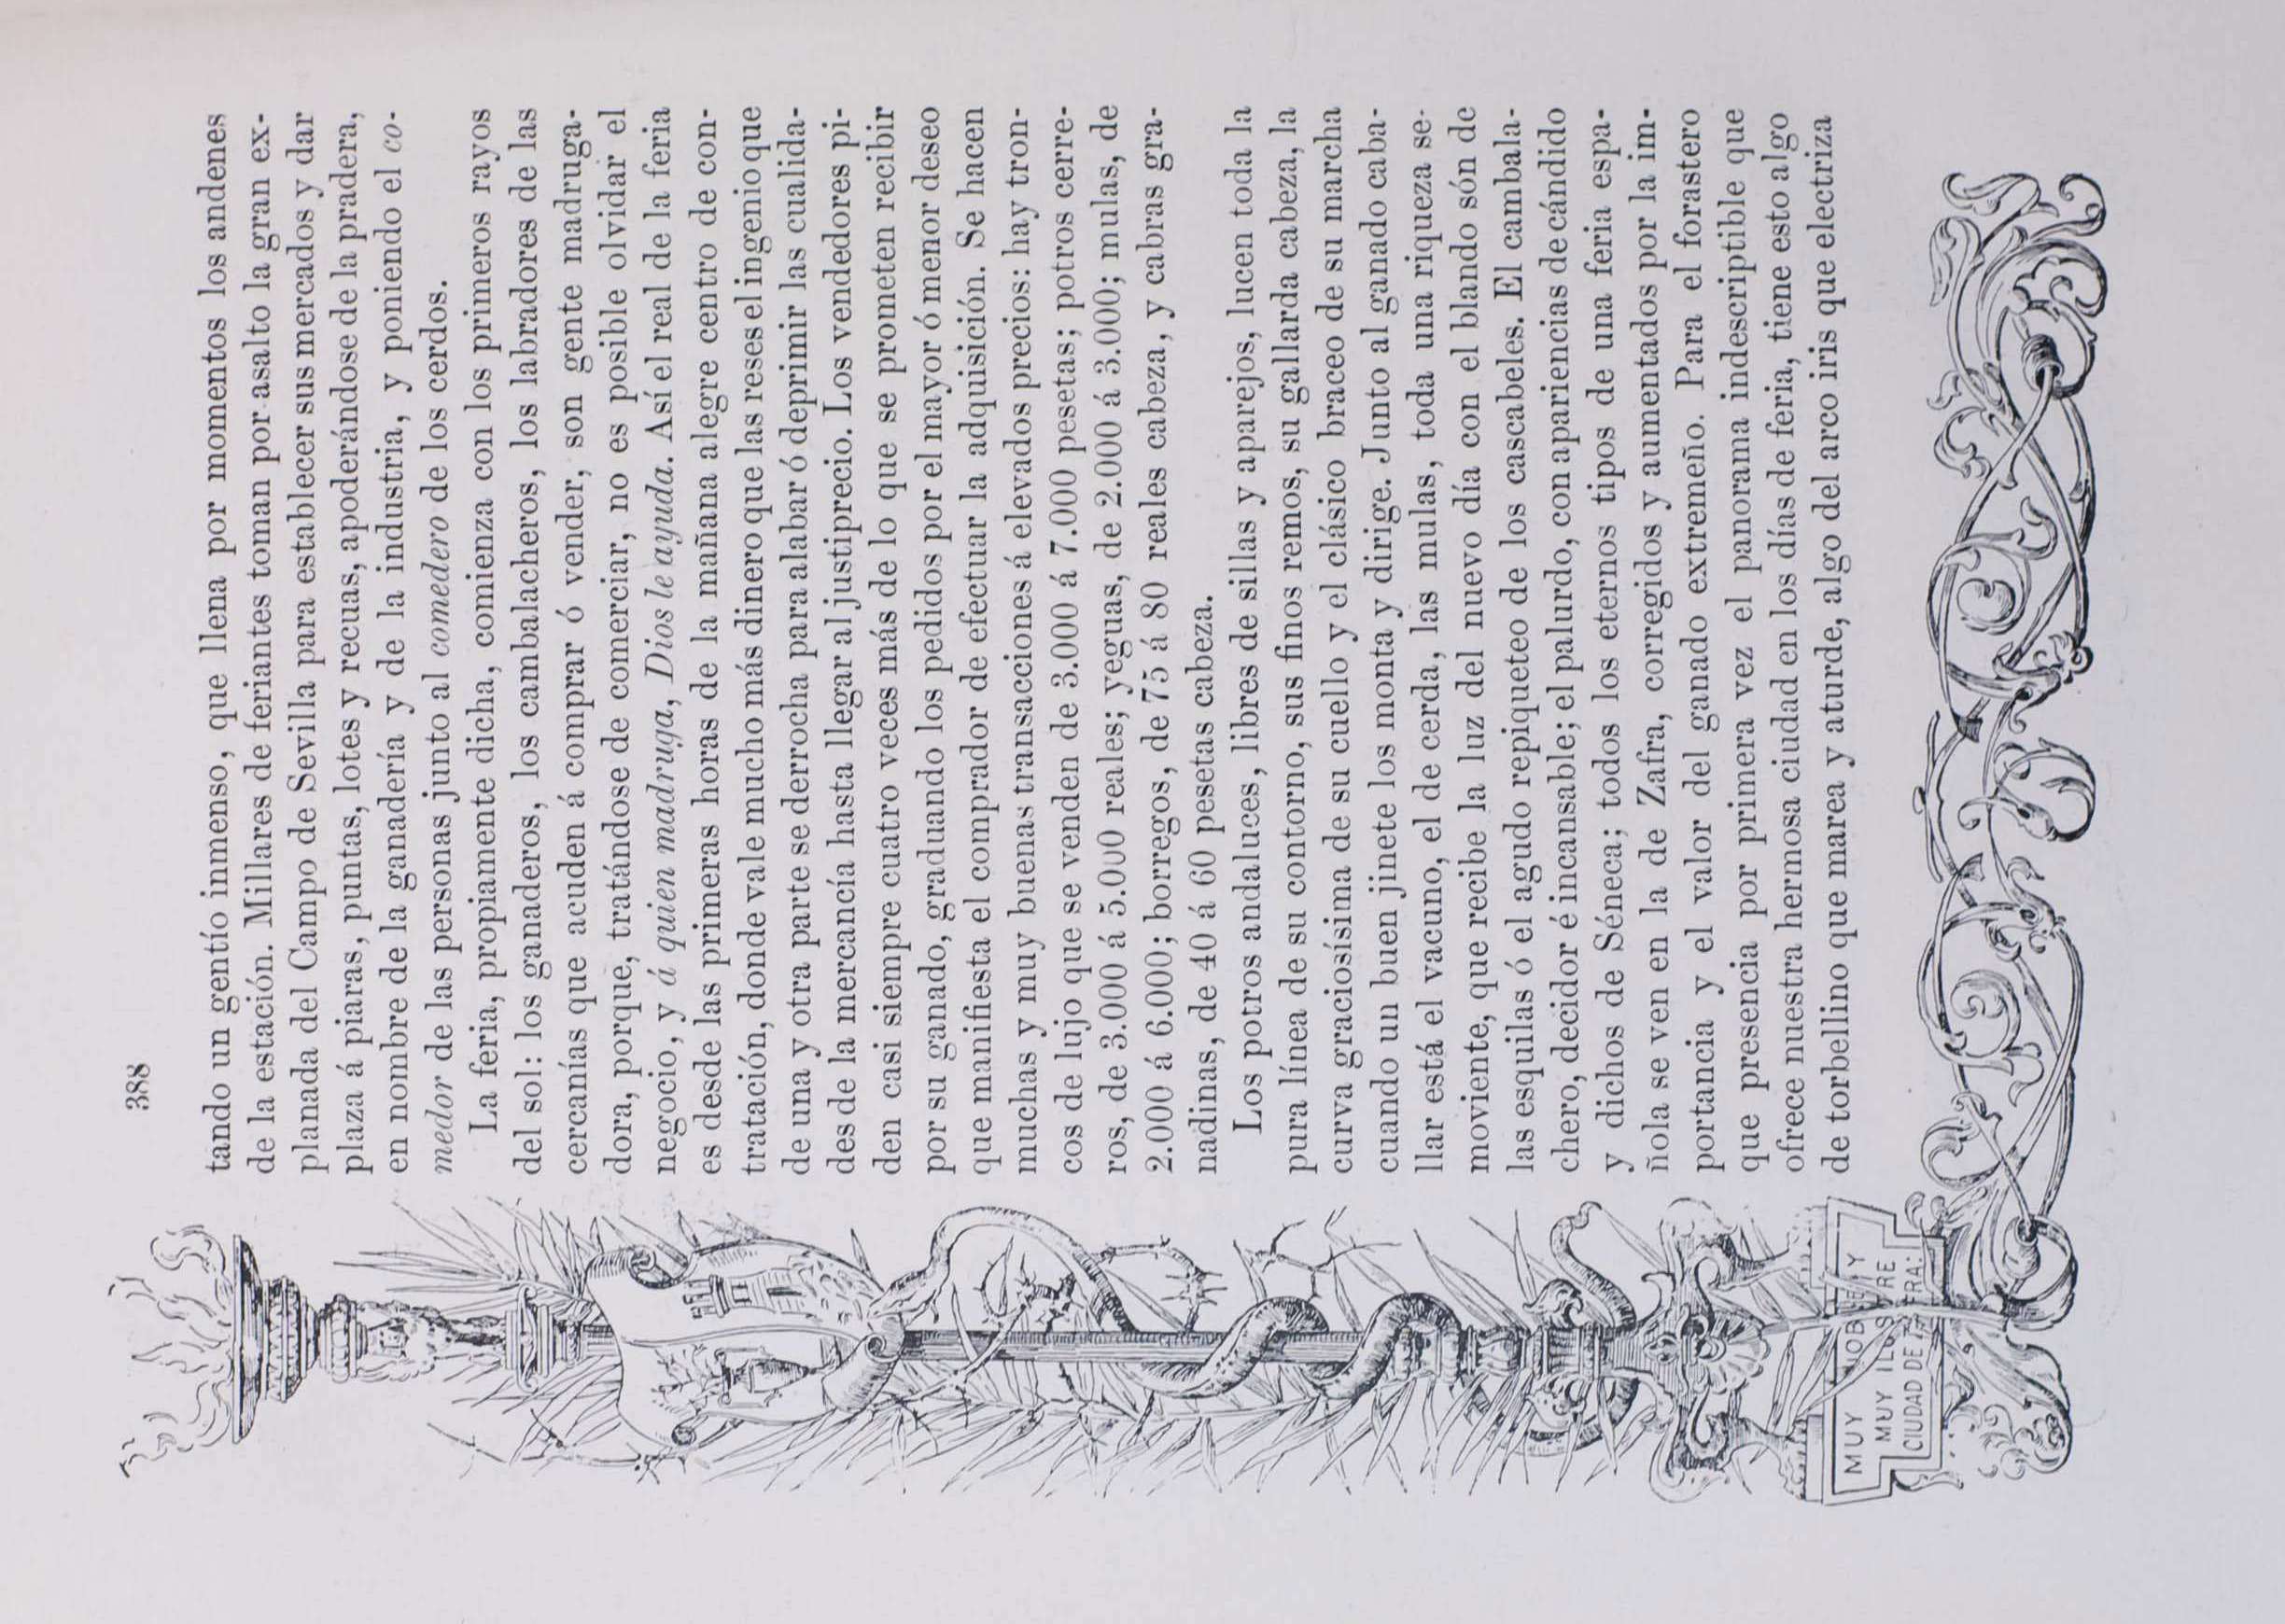 388
tando un gentío inmenso, que llena por momentos los andenes
de la estación. Millares de feriantes toman por asalto la gran ex-
planada del Campo de Sevilla para establecer sus mercados y dar
plaza á piaras, puntas, lotes y recuas, apoderándose de la pradera,
en nombre de la ganadería y de la industria, y poniendo el co-
medor de las personas junto al comedero de los cerdos.
La feria, propiamente dicha, comienza con los primeros rayos
del sol: los ganaderos, los cambalacheros, los labradores de las
cercanías que acuden á comprar ó vender, son gente madruga-
dora, porque, tratándose de comerciar, no es posible olvidar el
negocio, y á quien madruga, Dios le ayuda. Así el real de la feria
es desde las primeras horas de la mañana alegre centro de con-
tratación, donde vale mucho más dinero que las reses el ingenio que
de una y otra parte se derrocha para alabar ó deprimir las cualida-
des de la mercancía hasta llegar al justiprecio. Los vendedores pi-
den casi siempre cuatro veces más de lo que se prometen recibir
por su ganado, graduando los pedidos por el mayor ó menor deseo
que manifiesta el comprador de efectuar la adquisición. Se hacen
muchas y muy buenas transacciones á elevados precios: hay tron-
cos de lujo que se venden de 3.000 á 7.000 pesetas; potros cerre-
ros, de 3.000 á 5.000 reales; yeguas, de 2.000 á 3.000; mulas, de
2.000 á 6.000; borregos, de 75 á 80 reales cabeza, y cabras gra-
nadinas, de 40 á 60 pesetas cabeza.
Los potros andaluces, libres de sillas y aparejos, lucen toda la
pura línea de su contorno, sus finos remos, su gallarda cabeza, la
curva graciosísima de su cuello y el clásico braceo de su marcha
cuando un buen jinete los monta y dirige. Junto al ganado caba-
llar está el vacuno, el de cerda, las mulas, toda una riqueza se-
moviente, que recibe la luz del nuevo día con el blando són de
las esquilas ó el agudo repiqueteo de los cascabeles. El cambala-
chero, decidor é incansable; el palurdo, con apariencias de cándido
y dichos de Séneca; todos los eternos tipos de una feria espa-
ñola se ven en la de Zafra, corregidos y aumentados por la im-
portancia y el valor del ganado extremeño. Para el forastero
que presencia por primera vez el panorama indescriptible que
ofrece nuestra hermosa ciudad en los días de feria, tiene esto algo
de torbellino que marea y aturde, algo del arco iris que electriza
MUY NOBLE Y
MUY ILUSTRE
CIUDAD DE ZAFRA: